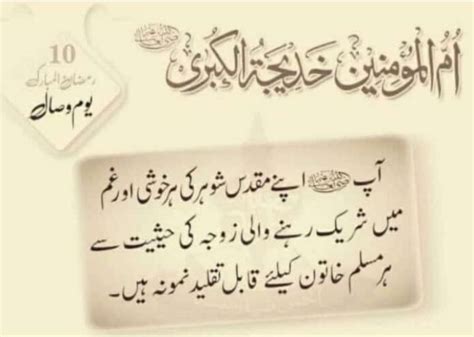 اُمُّ المُومنین خَدیجَۃُ الکُبریٰ
10
رمضان المبارک
یوم وصال
آپ اپنے مقدس شوہر کی ہر خوشی اور غم
میں شریک رہنے والی زوجہ کی حیثیت سے
ہر مسلم خاتون کیلئے قابل تقلید نمونہ ہیں۔